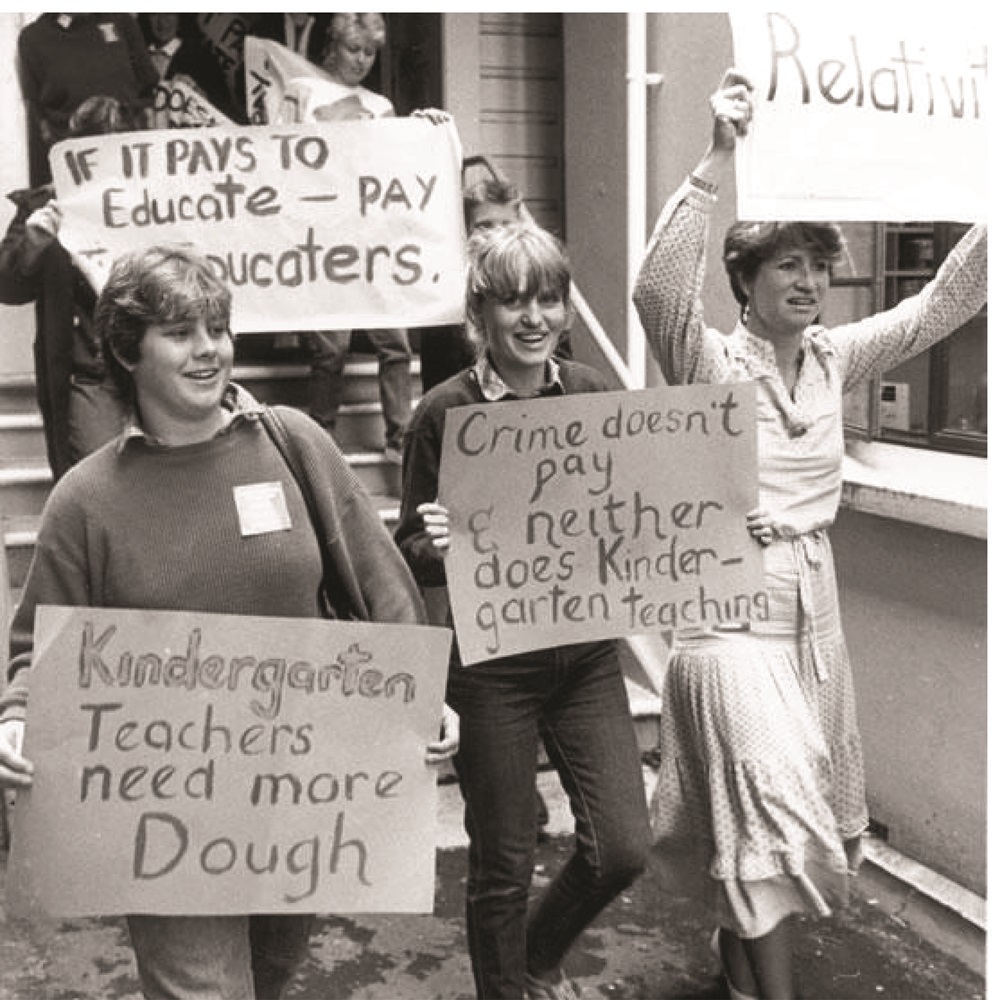 IF IT PAYS TO
Educate — PAY
ucaters.
Relativit
Crime doesn't
pay
& neither
does Kinder-
garten teaching
Kindergarten
Teachers
need more
Dough